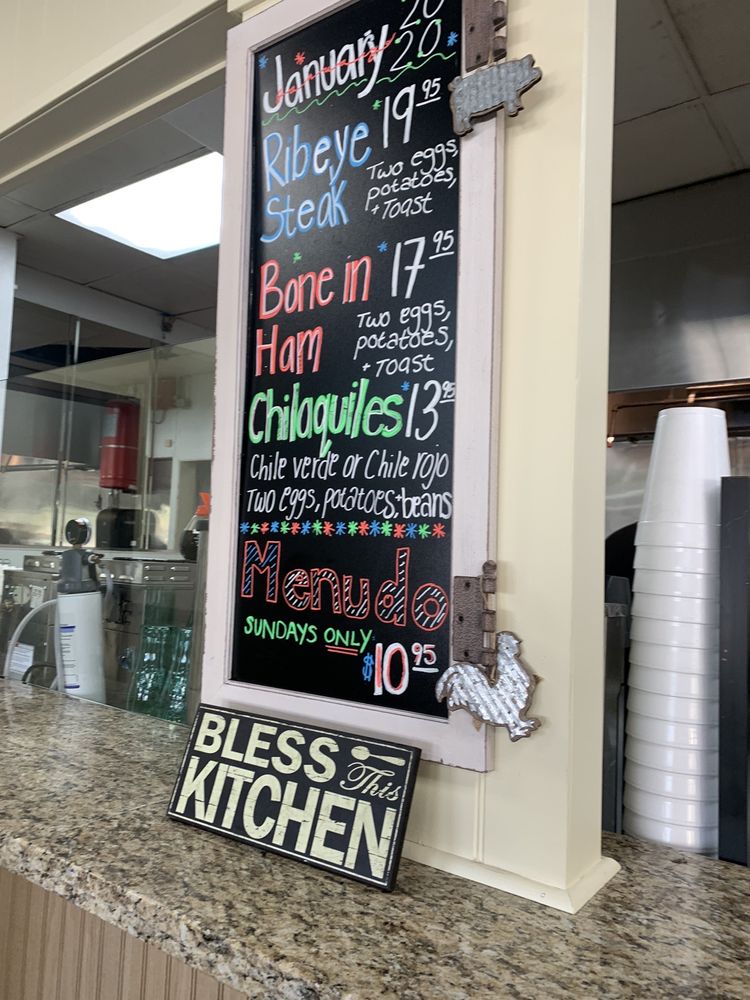 January 20
20
Ribeye $19.95
Steak
Two eggs,
potatoes,
+ Toast
Bone in $17.95
Ham
Two eggs,
potatoes,
+ Toast
Chilaquiles $13.95
Chile verde or Chile rojo
Two eggs, potatoes + beans
Menudo
SUNDAYS ONLY
$10.95
BLESS
This
KITCHEN